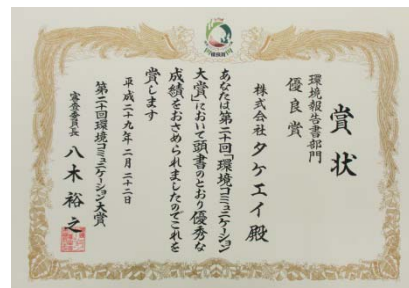 賞状
環境報告書部門
優良賞
株式会社タケエイ殿
あなたは第二十回「環境コミュニケーション
大賞」において頭書のとおり優秀な
成績をおさめられましたのでこれを
賞します
平成二十九年二月二十二日
第二十回環境コミュニケーション大賞
審査委員長 八木裕之